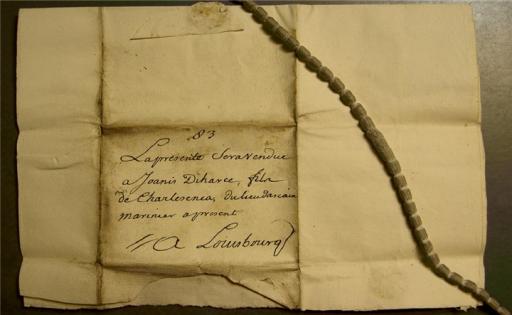 83
La presente Sera vendue
a Joanis Diharce, fils
de Charlesenea, du lieu dascain
marinier apresent
A Louisbourg